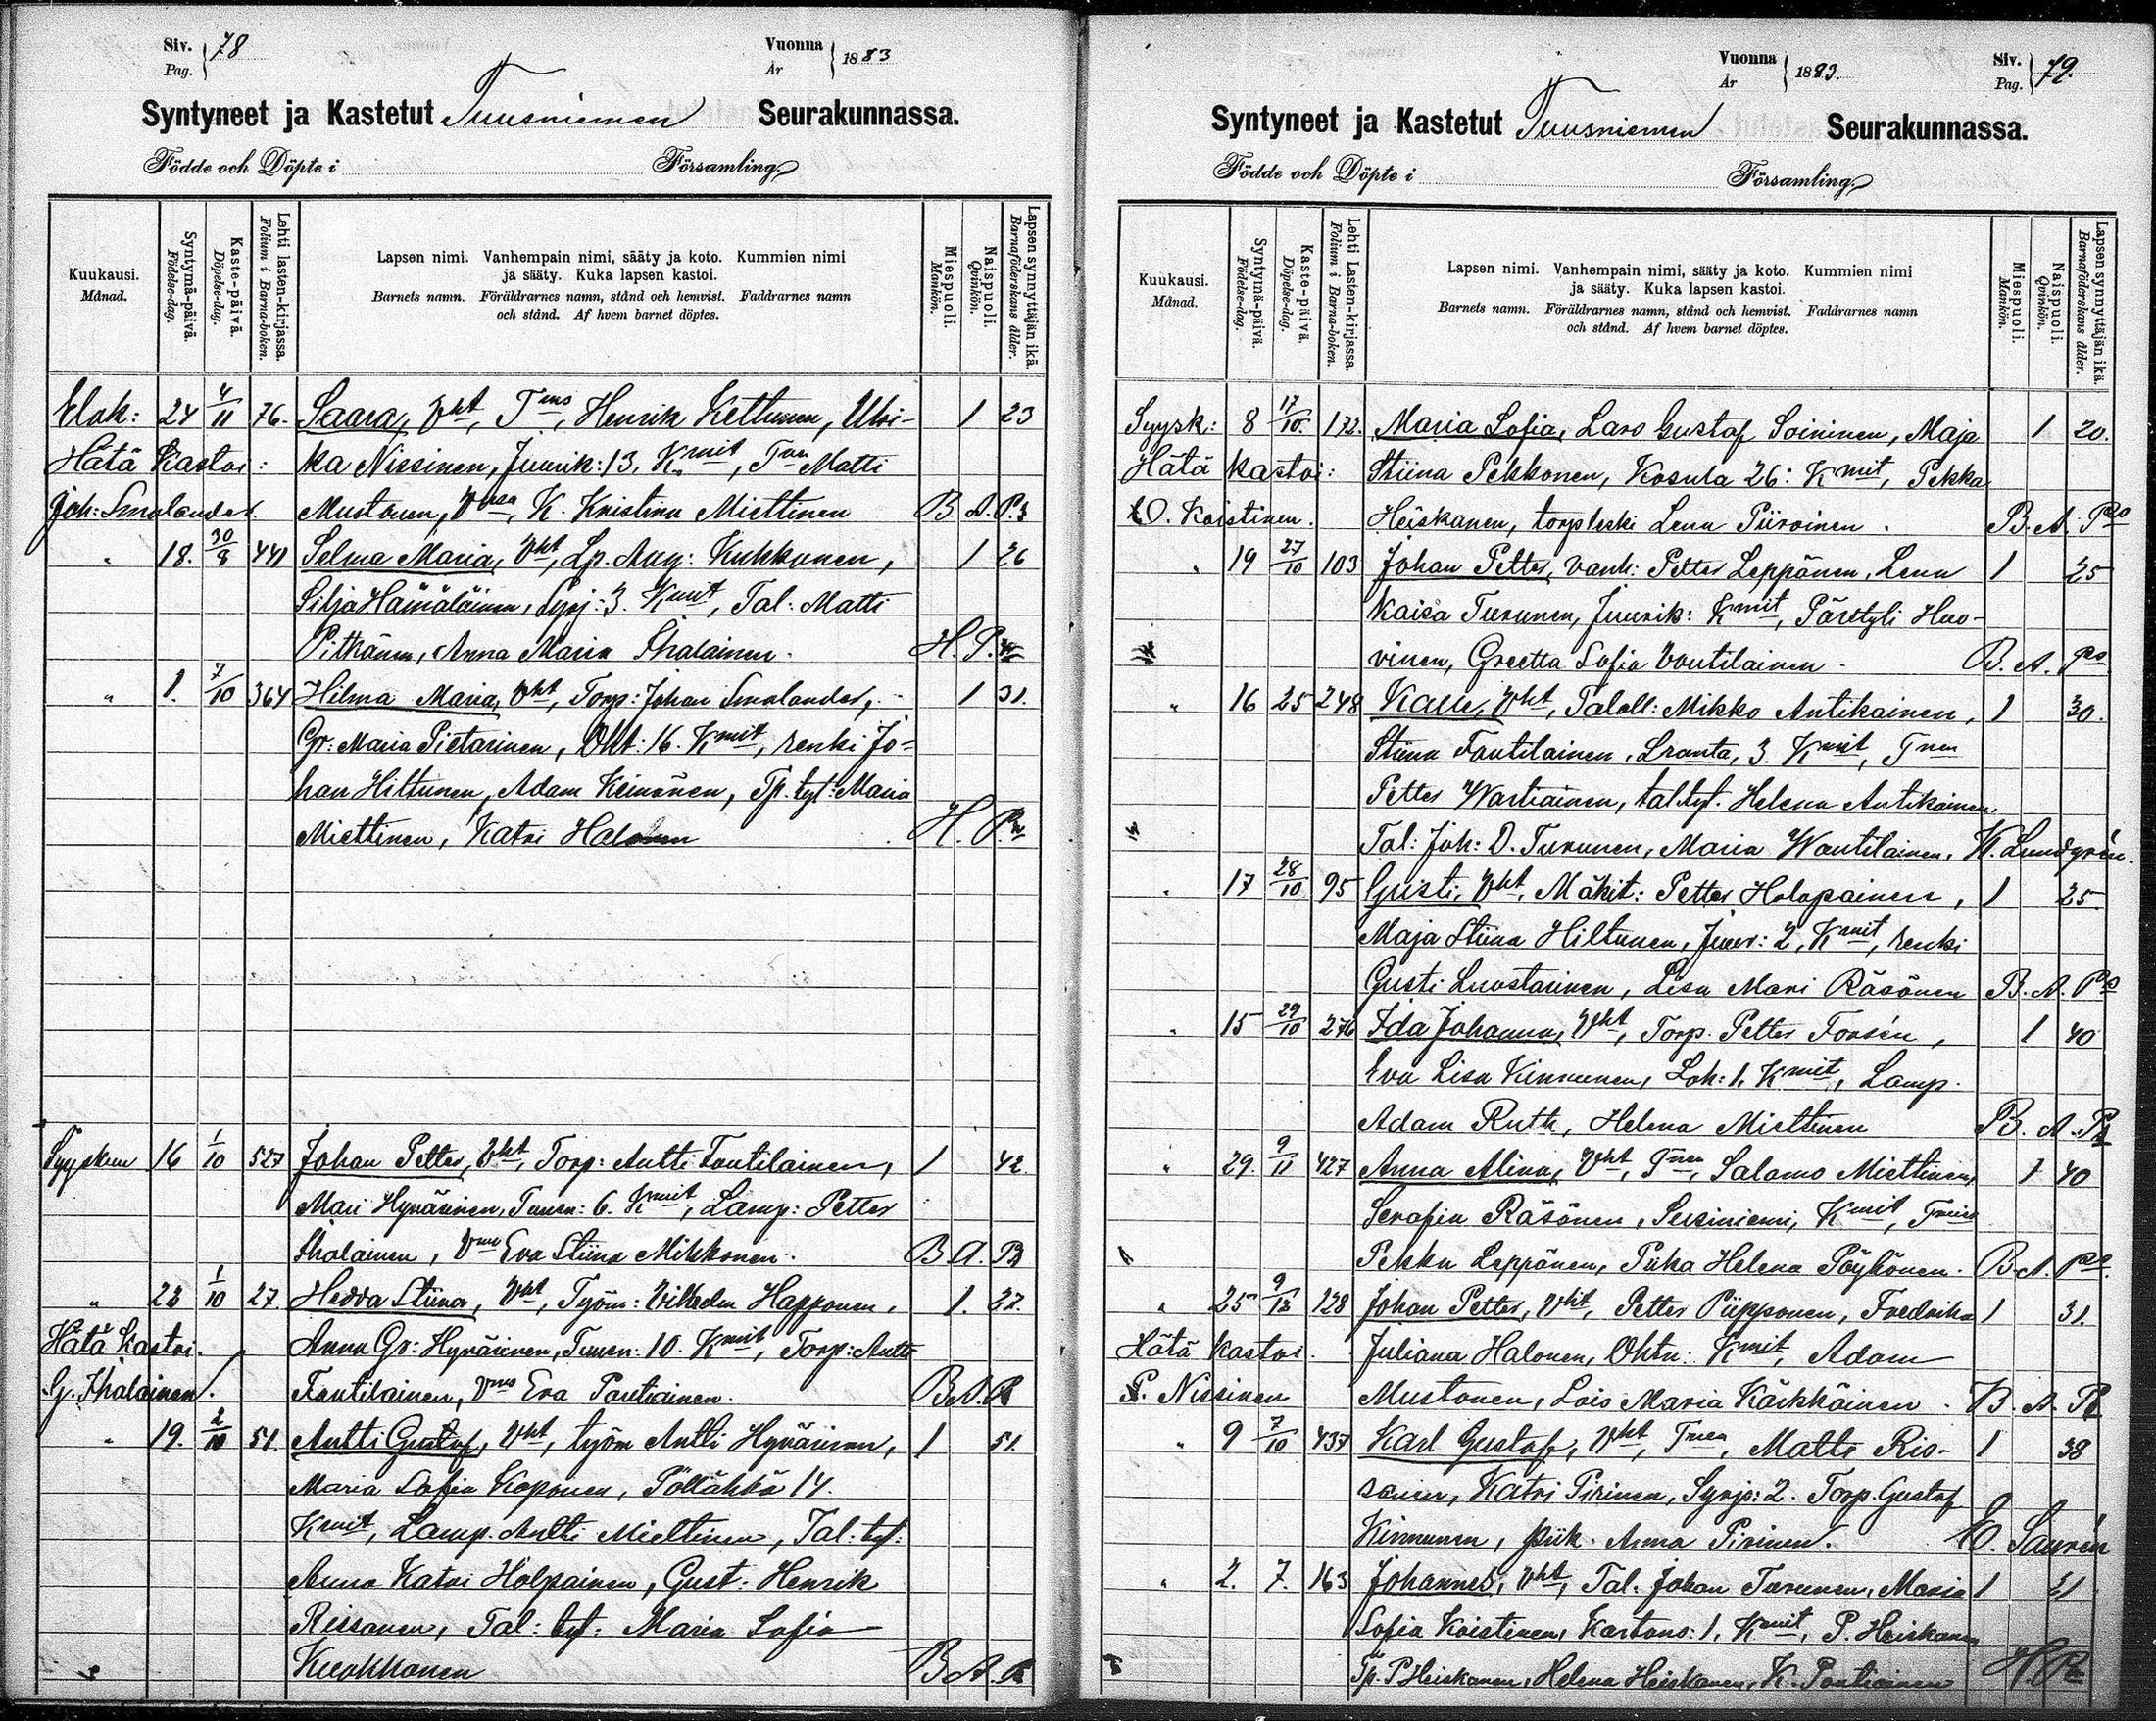 Siv. Pag. 78 Vuonna År 1883
Syntyneet ja Kastetut Tuusniemen Seurakunnassa.
Födde och Döpte i Församling.
Kuukausi. Månad.
Syntymä-päivä. Födelse-dag.
Kaste-päivä. Döpelse-dag.
Lehti lasten-kirjassa. Folium i Barna-boken.
Lapsen nimi. Vanhempain nimi, sääty ja koto. Kummien nimi
ja sääty. Kuka lapsen kastoi.
Barnets namn. Föräldrarnes namn, stånd och hemvist. Faddrarnes namn
och stånd. Af hvem barnet döptes.
Miespuoli. Mankön.
Naispuoli. Qvinkön.
Lapsen synnyttäjän ikä. Barnaföderskans ålder.
Elok: 24 4/11 76. Saara, Vht, Tms, Henrik Kettunen, Ulri- 1 23
Hätä Kastoi: ka Nissinen, Juurik: 13. Kmit, Matti
Joh: Smalander. Mustonen, K. Kristina Miettinen B. A. P.
" 18. 30/8 441 Selma Maria, Vht, Lp. Aug: Kukkonen, 1 26
Silja Hämäläinen, Syrj: 3. Kmit, Tal: Matti
Pitkänen, Anna Maria Ihalainen. H. P.
" 1. 7/10 364 Hilma Maria, Vht, Torp: Johan Smalander, 1 31.
Gr: Maria Pietarinen, Oht: 16. Kmit, renki Jo-
han Hiltunen, Adam Keinänen, Tp. tyt: Maria
Miettinen, Katri Halonen H.
Syyskuu 16 1/10 527 Johan Petter, Vht, Torp: Antti Fontilainen, 1 42.
Mari Hyväsinen, Tuusn: 6. Kmit, Lamp: Petter
Ihalainen, Eva Stiina Mikkonen. B. A.
" 23 1/10 27 Hedda Stiina, Vht, Työm: Vilhelm Happonen, 1. 27.
Hätä Kastoi. Anna Gr: Hyvärinen, Tuusn: 10. Kmit, Torp: Antti
G. Ihalainen. Fontilainen, Eva Pontiainen. B. A.
" 19. 2/10 51. Antti Gustaf, Vht, työm Antti Hyvärinen, 1 51.
Maria Sofia Koponen, Pöllähkä 14.
Kmit, Lamp. Antti Miettinen, Tal: tyt:
Anna Katri Holpainen, Gust. Henrik
Rissanen, Tal: tyt: Maria Sofia
Kuokkanen B. A.
Vuonna År 1883. Siv. Pag. 79.
Syntyneet ja Kastetut Tuusniemen Seurakunnassa.
Födde och Döpte i Församling.
Kuukausi. Månad.
Syntymä-päivä. Födelse-dag.
Kaste-päivä. Döpelse-dag.
Lehti Lasten-kirjassa. Folium i Barna-boken.
Lapsen nimi. Vanhempain nimi, sääty ja koto. Kummien nimi
ja sääty. Kuka lapsen kastoi.
Barnets namn. Föräldrarnes namn, stånd och hemvist. Faddrarnes namn
och stånd. Af hvem barnet döptes.
Miespuoli. Mankön.
Naispuoli. Qvinkön.
Lapsen synnyttäjän ikä. Barnaföderskans ålder.
Syysk: 8 17/10. 172. Maria Sofia, Lars Gustaf Soininen, Maja 1 20.
Hätä kastoi: Stiina Pekkonen, Kosula 26: Kmit, Pekka
O. Koistinen. Heiskanen, torp leski Lena Piiroinen. B. A.
" 19 27/10 103 Johan Petter, vanh: Petter Leppänen, Lena 1 25
Kaisa Turunen, Juurik: Kmit, Huo-
vinen, Greetta Sofia Voutilainen. B. A.
" 16 25 248 Kalle, Vht, Taloll: Mikko Antikainen, 1 30.
Stiina Fontilainen, Lranta, 3. Kmit,
Petter Wartiainen, tal tyt. Helena Antikainen,
Tal: Joh: D. Turunen, Maria Woutilainen. K. Lundgrén.
" 17 28/10 95 Gusti, Vht, Mäkit: Petter Holopainen, 1 25.
Maja Stiina Hiltunen, Juur: 2, Kmit, renki
Gusti Luostarinen, Lisa Mari Räsänen B. A.
" 15 29/10 276 Ida Johanna, Vht, Torp. Petter Forsén, 1 40
Eva Lisa Kinnunen, Loh: 1. Kmit, Lamp.
Adam Ruth, Helena Miettinen B. A.
" 29. 9/11 427 Anna Alina, Vht, Salomo Miettinen, 1 40
Serafia Räsänen, Susiniemi, Kmit,
Pekka Leppänen, Piika Helena Pöykönen. B. A.
" 25 9/12 128 Johan Petter, Vht, Petter Piipponen, Fredrika 1 31.
Hätä kastoi. Juliana Halonen, Ohtn: Kmit, Adam
P. Nissinen Mustonen, Lois Maria Käkkäinen. B. A.
" 9 7/10 437 Karl Gustaf, Vht, Matti Ris- 1 38
sanen, Katri Pirinen, Syrjs: 2. Torp. Gustaf
Kinnunen, piik. Anna Pirinen. E. Saurén
" 2. 7. 163 Johannes, Vht, Tal. Johan Turunen, Maria 1 21
Sofia Koistinen, Kartano: 1. Kmit, P. Heiskanen
Tp. P Heiskanen, Helena Heiskanen, K. Pontiainen H.